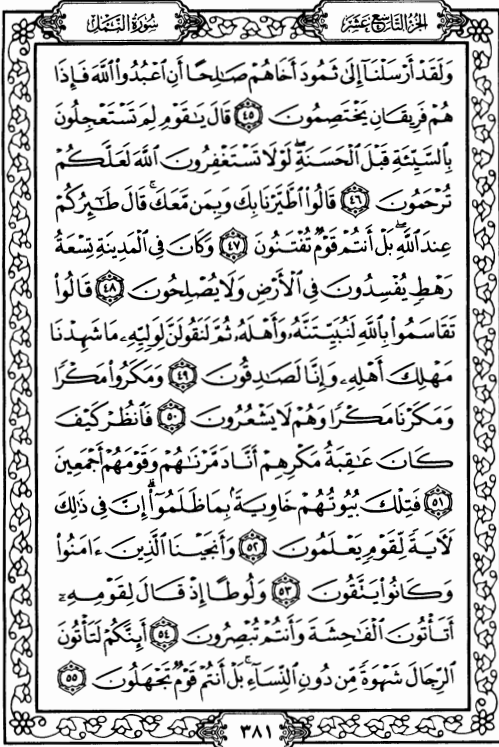 الجزء التاسع عشر
سورة النمل
وَلَقَدْ أَرْسَلْنَآ إِلَىٰ ثَمُودَ أَخَاهُمْ صَـٰلِحًا أَنِ ٱعْبُدُوا۟ ٱللَّهَ فَإِذَا
هُمْ فَرِيقَانِ يَخْتَصِمُونَ ٤٥ قَالَ يَـٰقَوْمِ لِمَ تَسْتَعْجِلُونَ
بِٱلسَّيِّئَةِ قَبْلَ ٱلْحَسَنَةِ ۖ لَوْلَا تَسْتَغْفِرُونَ ٱللَّهَ لَعَلَّكُمْ
تُرْحَمُونَ ٤٦ قَالُوا۟ ٱطَّيَّرْنَا بِكَ وَبِمَن مَّعَكَ ۚ قَالَ طَـٰٓئِرُكُمْ
عِندَ ٱللَّهِ ۖ بَلْ أَنتُمْ قَوْمٌ تُفْتَنُونَ ٤٧ وَكَانَ فِى ٱلْمَدِينَةِ تِسْعَةُ
رَهْطٍ يُفْسِدُونَ فِى ٱلْأَرْضِ وَلَا يُصْلِحُونَ ٤٨ قَالُوا۟
تَقَاسَمُوا۟ بِٱللَّهِ لَنُبَيِّتَنَّهُۥ وَأَهْلَهُۥ ثُمَّ لَنَقُولَنَّ لِوَلِيِّهِۦ مَا شَهِدْنَا
مَهْلِكَ أَهْلِهِۦ وَإِنَّا لَصَـٰدِقُونَ ٤٩ وَمَكَرُوا۟ مَكْرًا
وَمَكَرْنَا مَكْرًا وَهُمْ لَا يَشْعُرُونَ ٥٠ فَٱنظُرْ كَيْفَ
كَانَ عَـٰقِبَةُ مَكْرِهِمْ أَنَّا دَمَّرْنَـٰهُمْ وَقَوْمَهُمْ أَجْمَعِينَ
٥١ فَتِلْكَ بُيُوتُهُمْ خَاوِيَةًۢ بِمَا ظَلَمُوٓا۟ ۗ إِنَّ فِى ذَٰلِكَ
لَـَٔايَةً لِّقَوْمٍ يَعْلَمُونَ ٥٢ وَأَنجَيْنَا ٱلَّذِينَ ءَامَنُوا۟
وَكَانُوا۟ يَتَّقُونَ ٥٣ وَلُوطًا إِذْ قَالَ لِقَوْمِهِۦٓ
أَتَأْتُونَ ٱلْفَـٰحِشَةَ وَأَنتُمْ تُبْصِرُونَ ٥٤ أَئِنَّكُمْ لَتَأْتُونَ
ٱلرِّجَالَ شَهْوَةً مِّن دُونِ ٱلنِّسَآءِ ۚ بَلْ أَنتُمْ قَوْمٌ تَجْهَلُونَ ٥٥
٣٨١